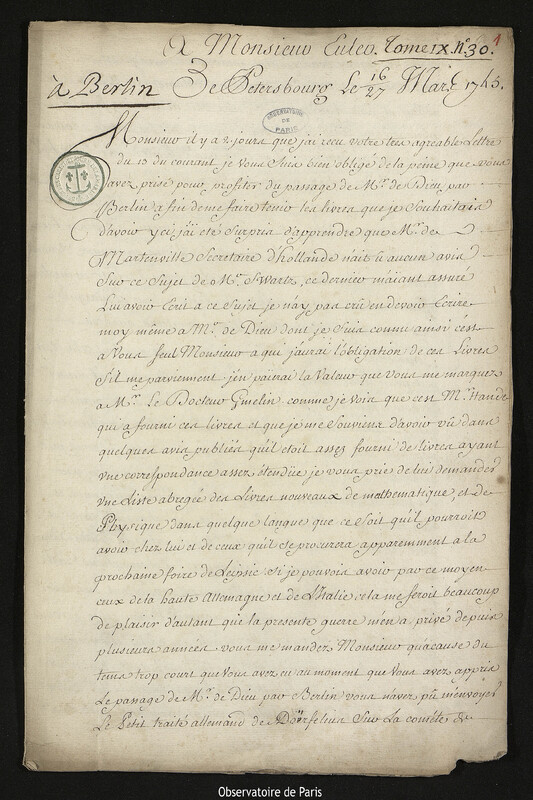 A Monsieur Euler. Tome IX. N.º 30. 1
à Berlin De Petersbourg Le 16/27 Mars 1745.
Monsieur il y a 2 jours que j'ai recu votre tres agreable Lettre
OBSERVATOIRE DE PARIS
du 13 du courant je vous suis bien obligé de la peine que vous
avez prise pour profiter du passage de Mr. de Dieu par
Berlin afin de me faire tenir les livres que je souhaitais
d'avoir yci j'ai eté surpris d'apprendre que Mr. de
Martenville Secretaire d'hollande n'ait û aucun avis
sur ce sujet de Mr. Swartz, ce dernier m'aïant assuré
Lui avoir Ecrit a ce sujet je n'ay pas crû en devoir Ecrire
moy même a Mr. de Dieu dont je suis connu ainsi c'est
a Vous seul Monsieur a qui j'aurai l'obligation de ces Livres
s'il me parviennent j'en païerai la Valeur que vous me marquez
a Mr. Le Docteur Gmelin comme je vois que c'est Mr. Haude
qui a fourni ces livres et que je me souviens d'avoir vû dans
quelques avis publics qu'il etoit assez fourni de livres ayant
une correspondance assez étendüe je vous prie de lui demander
une Liste abregée des Livres nouveaux de mathematique et de
Physique dans quelque langue que ce soit qu'il pourroit
avoir chez lui et de ceux qu'il se procurera apparemment a la
prochaine foire de Leipsic si je pouvois avoir par ce moyen
ceux de la haute Allemagne et de L'Italie, cela me feroit beaucoup
de plaisir d'autant que la presente guerre m'en a privé depuis
plusieurs années vous me mandez Monsieur qu'acause du
tems trop court que Vous avez eu au moment que Vous avez appris
Le passage de Mr. de Dieu par Berlin vous n'avez pû m'envoyer
Le Petit traité allemand de Dörfelius sur La cométe de
Observatoire de Paris